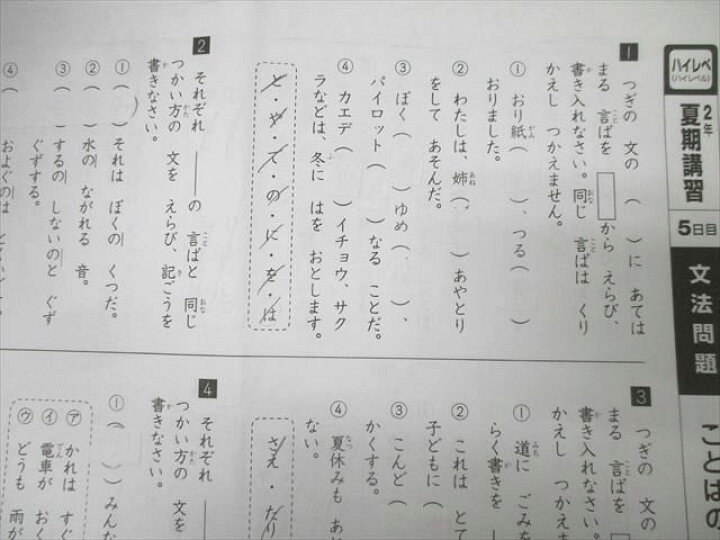 ハイレベ
(ハイレベル)
2年
夏期講習
5日目
文法問題
ことばの
1 つぎの 文の ( )に あては
まる 言ばを □から えらび、
書き入れなさい。同じ 言ばは くり
かえし つかえません。
① おり紙( )、つる( )
おりました。
② わたしは、姉( )、 )あやとり
をして あそんだ。
③ ぼく( )ゆめ( )、
パイロット( )なる ことだ。
④ カエデ( )イチョウ、サク
ラなどは、冬に はを おとします。
と・や・で・の・に・を・は
2 それぞれ ――の 言ばと 同じ
つかい方の 文を えらび、記ごうを
書きなさい。
① ( )それは ぼくの くつだ。
② ( )水の ながれる 音。
③ ( )するの しないのと ぐず
ぐずする。
④ ( )およぐのは
3 つぎの 文の
まる 言ばを
書き入れなさい
かえし つかえま
① 道に ごみを
らく書きを
② これは とて
子どもに(
③ こんど(
かくする。
④ 夏休みも あ
ない。
さえ・だり
4 それぞれ
つかい方の 文を
書きなさい。
① ( )みんな
㋐ かれは すぐ
㋑ 電車が おく
㋒ どうも 雨が